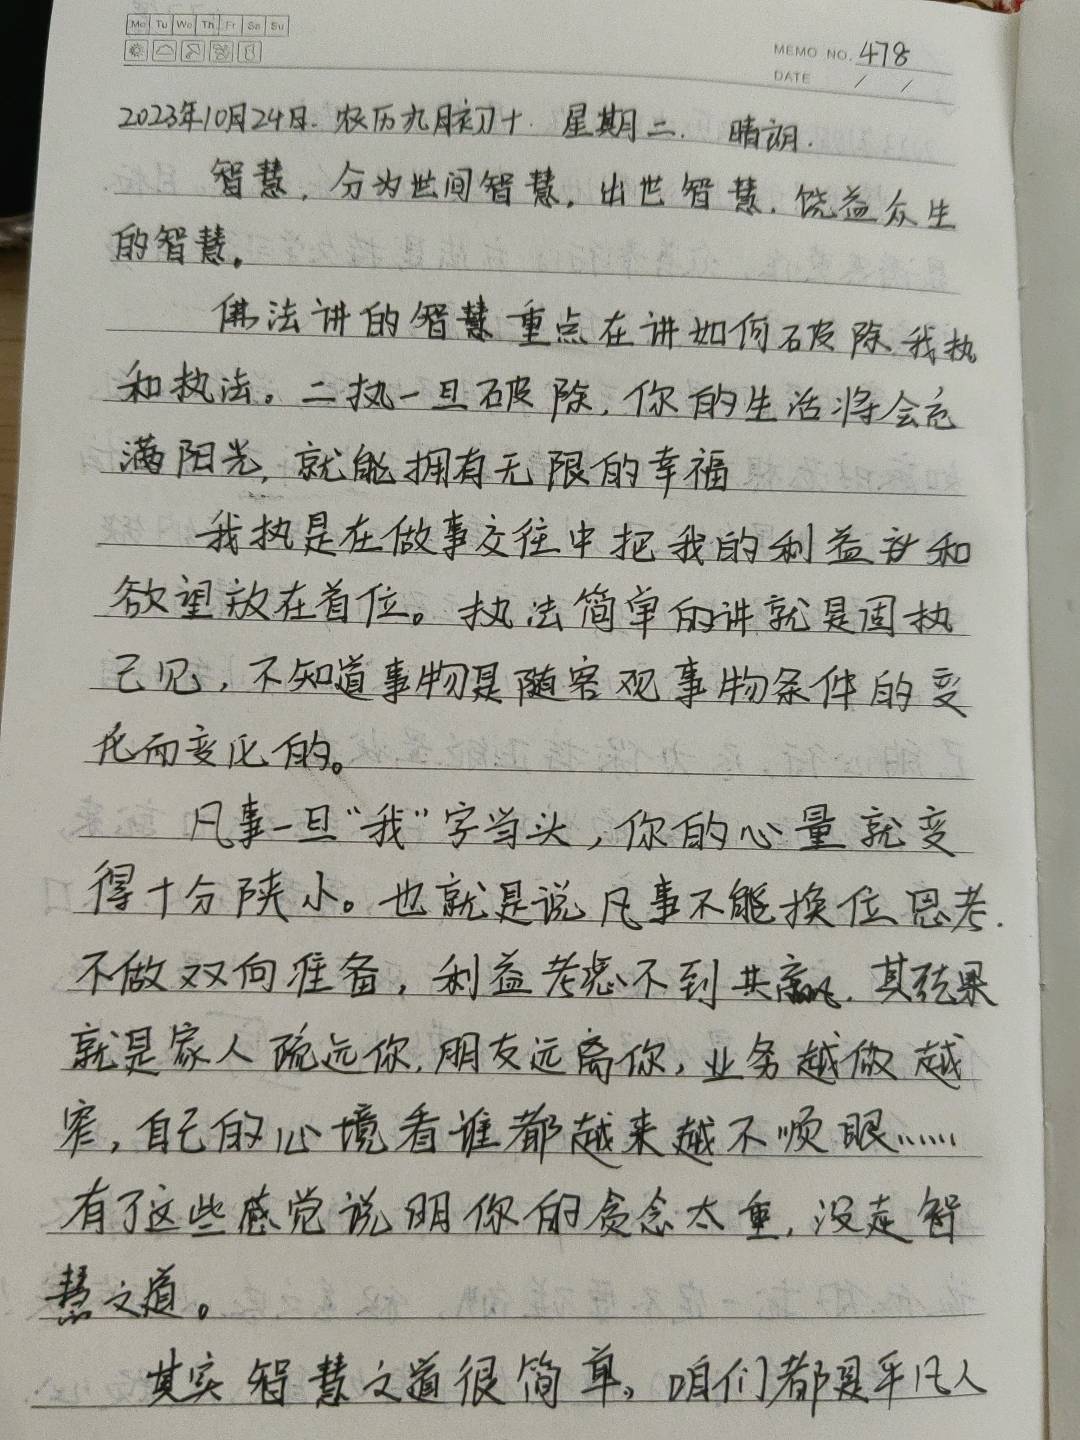 Mo Tu We Th Fr Sa Su
MEMO NO. 478
DATE / /
2023年10月24日. 农历九月初十. 星期二. 晴朗.
智慧, 分为世间智慧, 出世智慧, 饶益众生
的智慧。
佛法讲的智慧重点在讲如何破除我执
和执法。二执一旦破除, 你的生活将会充
满阳光, 就能拥有无限的幸福
我执是在做事交往中把我的利益 和
欲望放在首位。执法简单的讲就是固执
己见, 不知道事物是随客观事物条件的变
化而变化的。
凡事一旦“我”字当头, 你的心量就变
得十分陕小。也就是说凡事不能换位思考.
不做双向准备, 利益考虑不到共赢. 其结果
就是家人疏远你, 朋友远离你, 业务越做越
窄, 自己的心境看谁都越来越不顺眼......
有了这些感觉说明你的贪念太重, 没走智
慧之道。
其实智慧之道很简单, 咱们都是平凡人